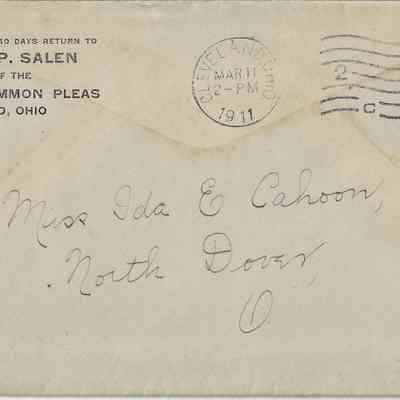 40 DAYS RETURN TO
P. SALEN
OF THE
MMON PLEAS
D, OHIO
CLEVELAND, OHIO
MAR 11
2-PM
1911
2
C
Miss Ida E Cahoon,
North Dover,
O.